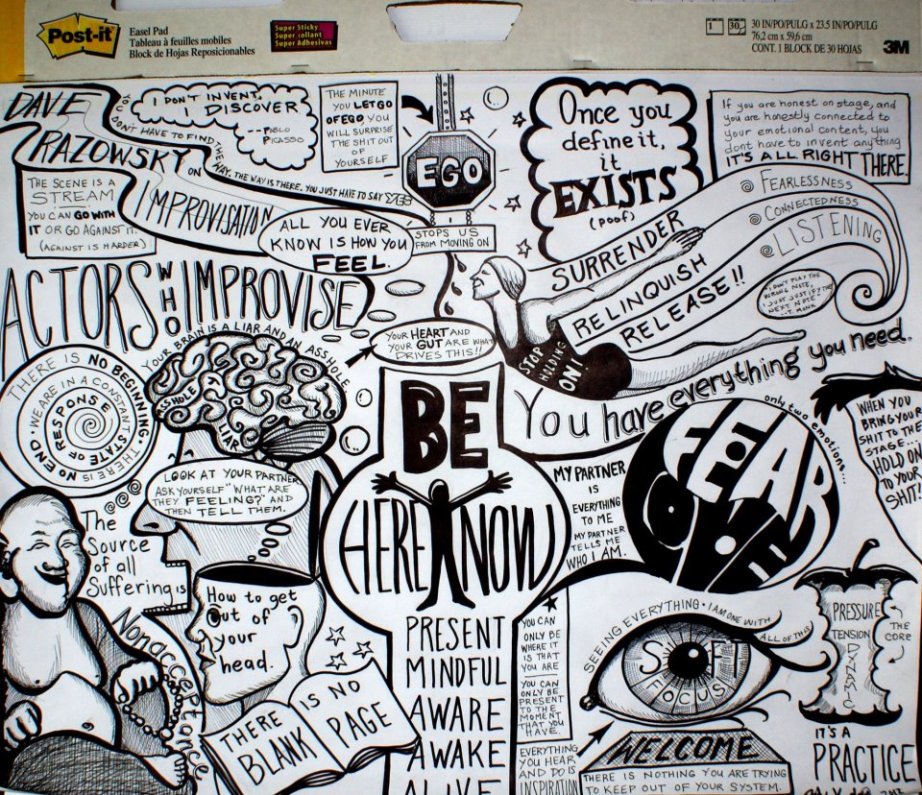 Post-it
Easel Pad
Tableau à feuilles mobiles
Block de Hojas Reposicionables
Super Sticky
Super collant
Super Adhesivas
30 IN/PO/PULG x 23.5 IN/PO/PULG
76,2 cm x 59,6 cm
CONT. 1 BLOCK DE 30 HOJAS
3M
DAVE
RAZOWSKY
ON
IMPROVISATION
YOU DON'T HAVE TO FIND THE WAY. THE WAY IS THERE. YOU JUST HAVE TO SAY YES
I DON'T INVENT,
I DISCOVER
-- PABLO
PICASSO
THE MINUTE
YOU LET GO
OF EGO YOU
WILL SURPRISE
THE SHIT OUT
OF
YOURSELF
EGO
STOPS US
FROM MOVING ON
Once you
define it,
it
EXISTS
(poof)
If you are honest on stage, and
you are honestly connected to
your emotional content, you
dont have to invent anything
IT'S ALL RIGHT
THERE.
THE SCENE IS A
STREAM
YOU CAN GO WITH
IT OR GO AGAINST IT.
(AGAINST IS HARDER)
ALL YOU EVER
KNOW IS HOW YOU
FEEL.
FEARLESSNESS
CONNECTEDNESS
LISTENING
SURRENDER
RELINQUISH
RELEASE!!
DON'T PLAY THE
WRONG NOTE,
I JUST JUSTIFY THE
NEXT NOTE"
-T. MONK
STOP
HOLDING
ON!
ACTORS
WHO
IMPROVISE
YOUR BRAIN IS A LIAR AND AN ASSHOLE
ASSHOLE
LIAR
YOUR HEART AND
YOUR GUT ARE WHAT
DRIVES THIS!!
You have everything you need.
THERE IS NO BEGINNING. THERE IS NO END.
WE ARE IN A CONSTANT STATE OF
RESPONSE
LOOK AT YOUR PARTNER
ASK YOURSELF "WHAT ARE
THEY FEELING?" AND
THEN TELL THEM.
BE
HERE NOW
MY PARTNER
IS
EVERYTHING
TO ME
MY PARTNER
TELLS ME
WHO I AM.
only two emotions...
FEAR
LOVE
WHEN YOU
BRING YOUR
SHIT TO THE
STAGE...
HOLD ON
TO YOUR
SHIT!
The
Source
of all
Suffering is
Nonacceptance
How to get
out of
your
head.
THERE IS NO
BLANK PAGE
PRESENT
MINDFUL
AWARE
AWAKE
ALIVE
YOU CAN
ONLY BE
WHERE IT
IS THAT
YOU ARE
YOU CAN
ONLY BE
PRESENT
TO THE
MOMENT
THAT YOU
HAVE.
EVERYTHING
YOU HEAR
AND DO IS
INSPIRATION
SEEING EVERYTHING • I AM ONE WITH ALL OF THIS
SOFT
FOCUS
WELCOME
THERE IS NOTHING YOU ARE TRYING
TO KEEP OUT OF YOUR SYSTEM.
PRESSURE
TENSION
DYNAMIC
THE
CORE
IT'S A
PRACTICE